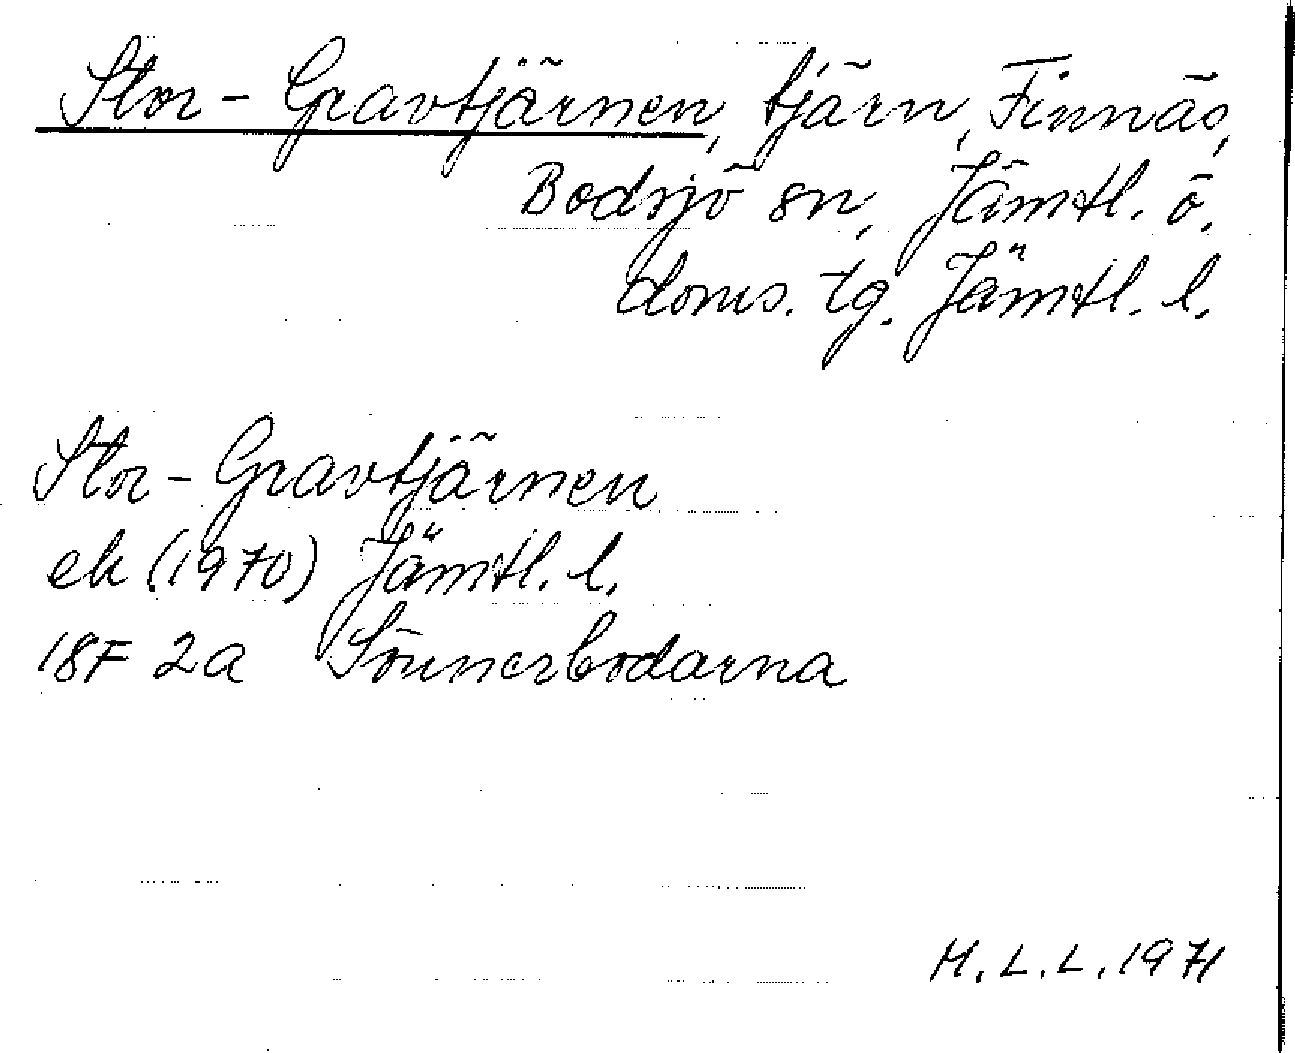 Stor-Gravtjärnen, tjärn, Finnäs,
Bodsjö sn, Jämtl. ö.
doms. tg. Jämtl. l.
Stor-Gravtjärnen
ek (1970) Jämtl. l.
18F 2a Sönnerbodarna
M.L.L. 1971